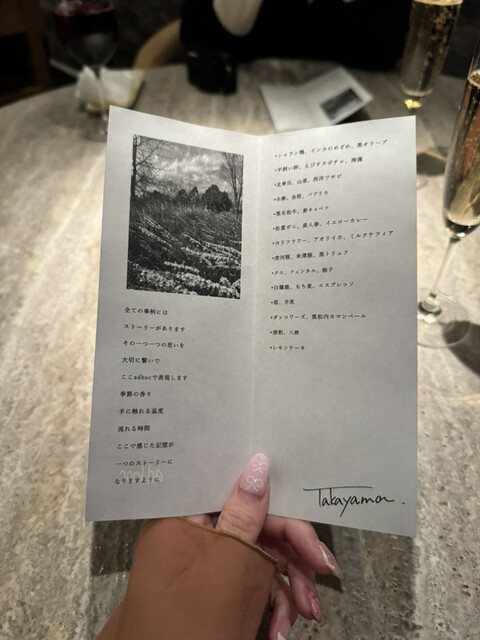 全ての事柄には
ストーリーがあります
その一つ一つの思いを
大切に繋いで
ここadhocで表現します
季節の香り
手に触れる温度
流れる時間
ここで感じた記憶が
一つのストーリーに
なりますように
•シャラン鴨、インカのめざめ、黒オリーブ
•平飼い卵、えびすカボチャ、海藻
•北寄貝、山菜、西洋ワサビ
•小鳩、金柑、パプリカ
•黒毛和牛、芽キャベツ
•松葉ガニ、島人参、イエローカレー
•カリフラワー、アオリイカ、ミルクケフィア
•虎河豚、米澤豚、黒トリュフ
•クエ、フェンネル、柚子
•白麹鹿、もち麦、エスプレッソ
•苺、羊乳
•ダッコワーズ、黒松内カマンベール
•八朔
•レモンケーキ
Takayama.